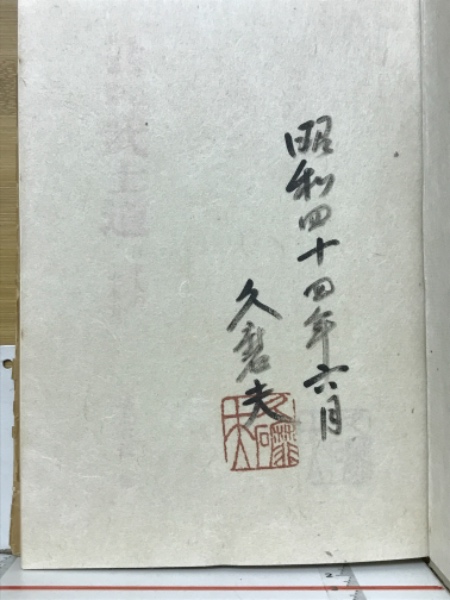 昭和四十四年六月
久磨夫